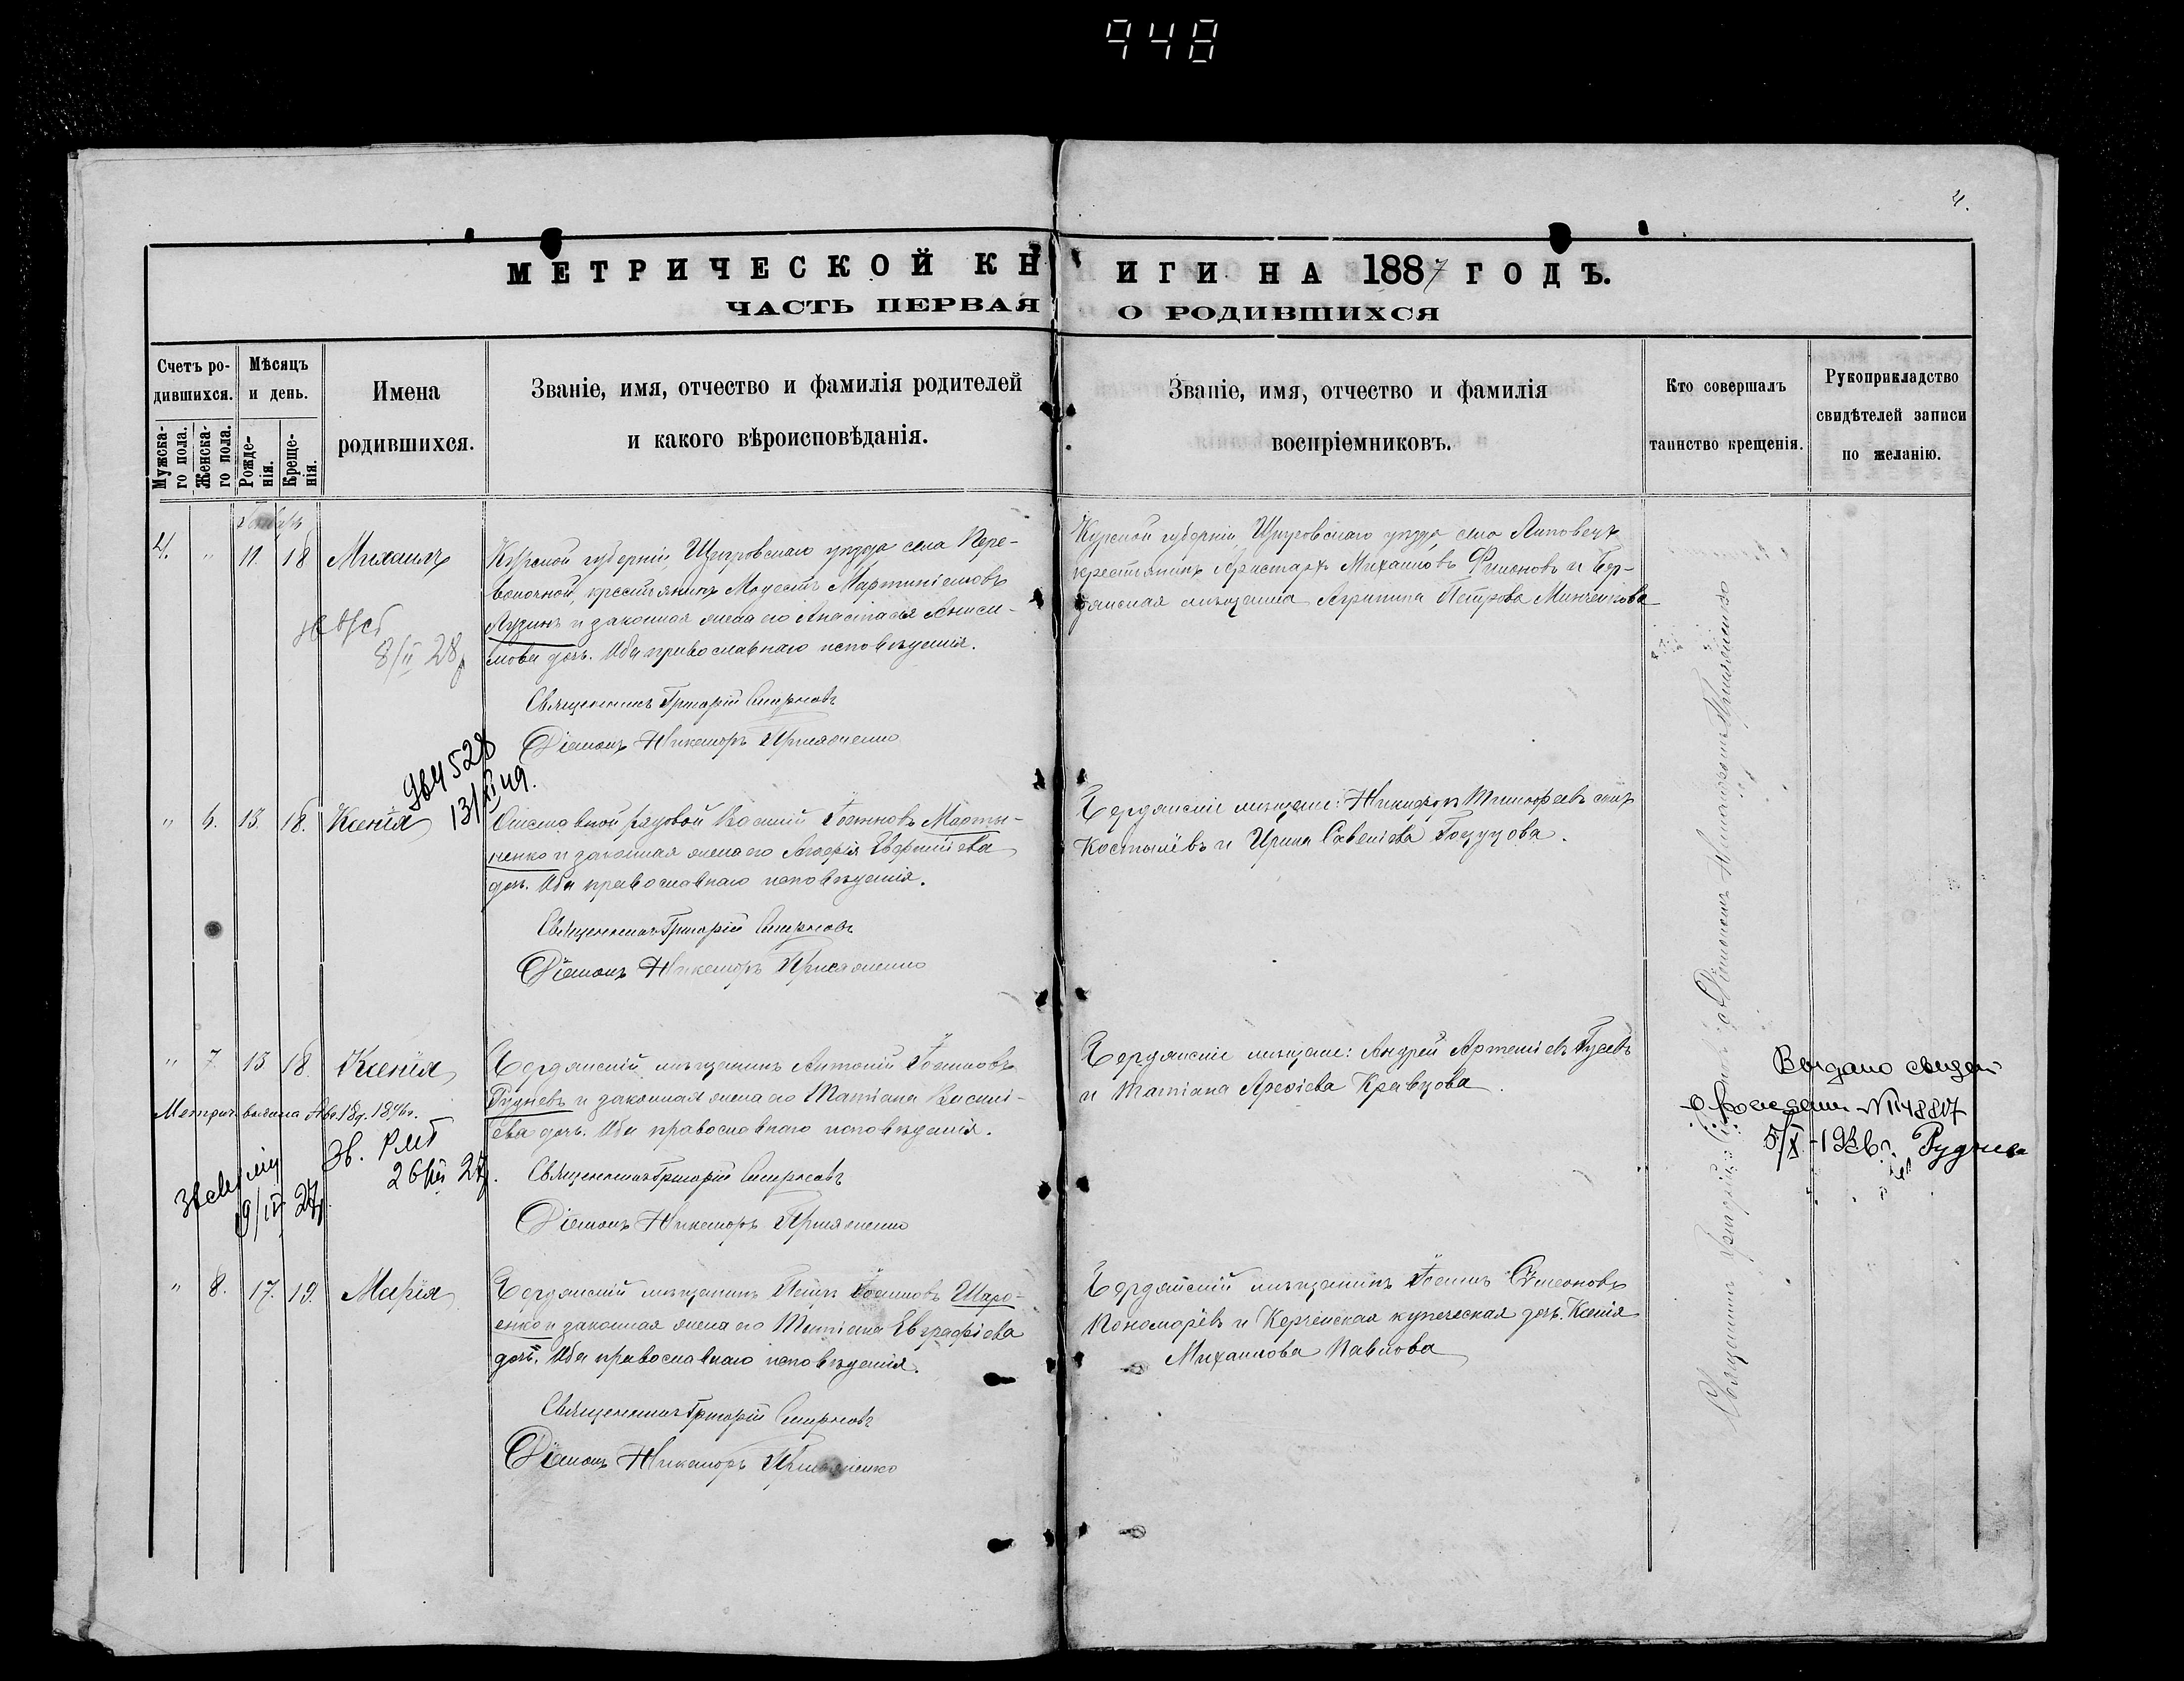 948
4.
МЕТРИЧЕСКОЙ КНИГИ НА 1887 ГОДЪ.
ЧАСТЬ ПЕРВАЯ О РОДИВШИХСЯ
Счетъ родившихся.
Мужскаго пола.
Женскаго пола.
Мѣсяцъ и день.
Рожденія.
Крещенія.
Имена
родившихся.
Званіе, имя, отчество и фамилія родителей
и какого вѣроисповѣданія.
Званіе, имя, отчество и фамилія
воспріемниковъ.
Кто совершалъ
таинство крещенія.
Рукоприкладство
свидѣтелей записи
по желанію.
4. " 11. 18 Михаилъ
Курской губерніи, Щигровскаго уѣзда села Пере-
волочной, крестьянинъ Модестъ
и законная жена его Анастасія Аниси-
мова дочь. Оба православнаго исповѣданія.
Священникъ Григорій Смирновъ
Діаконъ Никаноръ Присяженко
Курской губерніи, Щигровскаго уѣзда, села Липовецъ
крестьянинъ Аристархъ Михаиловъ Филоновъ и Бер-
дянская мѣщанка Агрипина Петрова Минченкова
8/II 28
" 6. 13. 18. Ксенія
528
13/XI 49.
рядовой Василій Іоанновъ Марты-
ненко и законная жена его
дочь. Оба православнаго исповѣданія.
Священникъ Григорій Смирновъ
Діаконъ Никаноръ Присяженко
Бердянскіе мѣщане: Никифоръ Тимофеевъ сынъ
Костылёвъ и Ирина Савелієва
" 7. 13 18. Ксенія
Бердянскій мѣщанинъ Антоній Іоанновъ
Рудневъ и законная жена его Татіана Василі-
ева дочь. Оба православнаго исповѣданія.
Священникъ Григорій Смирновъ
Діаконъ Никаноръ Присяженко
Бердянскіе мѣщане: Андрей Артеміевъ Гусевъ
и Татіана Кравцова.
Выдано свидет
о рождении
5/X - 1936г. Руднев
" 8. 17. 19. Марія
Бердянскій мѣщанинъ Петръ Іоанновъ Шаро-
енко и законная жена его Татіана Евграфіева
дочь. Оба православнаго исповѣданія.
Священникъ Григорій Смирновъ
Діаконъ Никаноръ Присяженко
Бердянскій мѣщанинъ Іоаннъ Симеоновъ
Пономарёвъ и Керченская купеческая дочь Ксенія
Михаилова Павлова
Священникъ Григорій Смирновъ съ Діакономъ Никаноромъ Присяженко